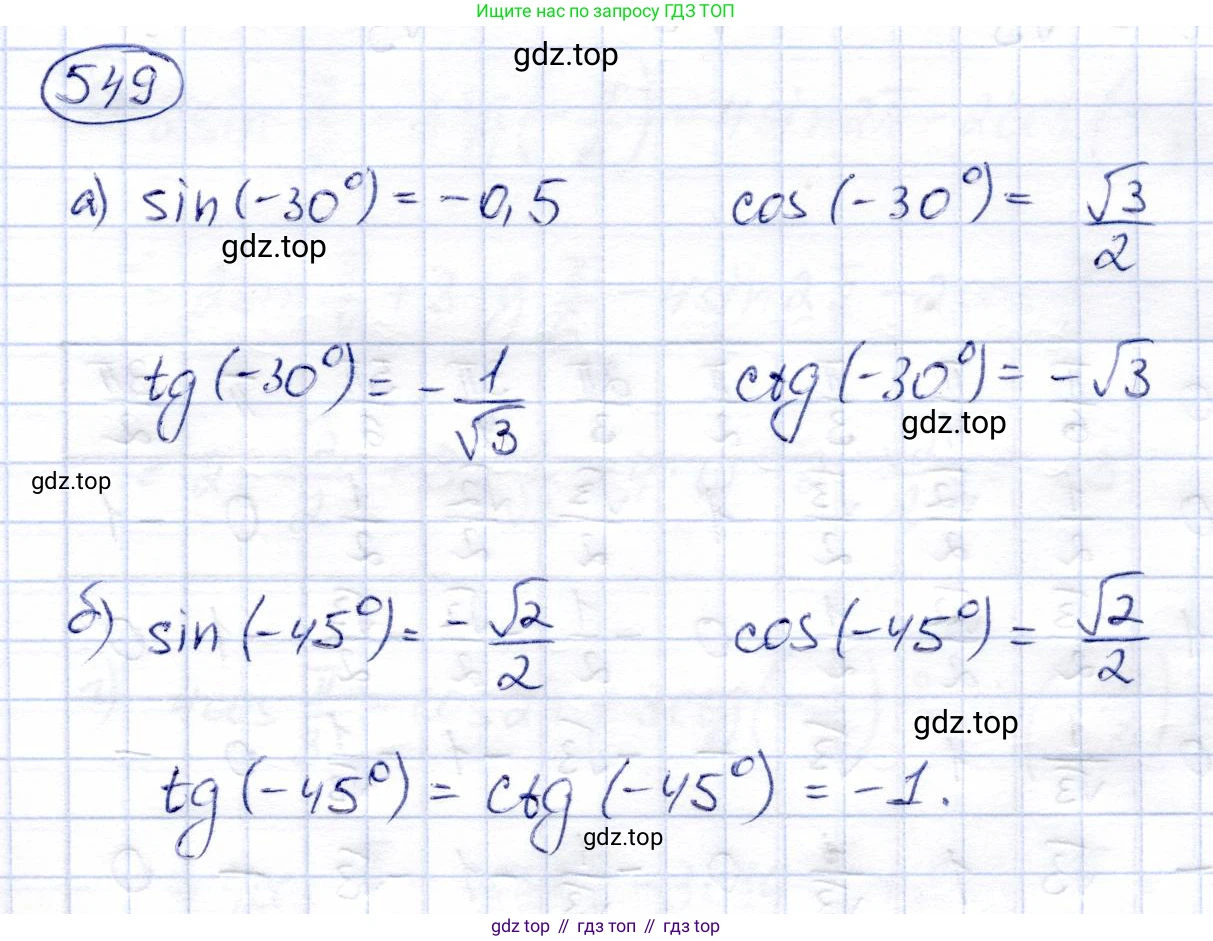 Ищите нас по запросу ГДЗ ТОП
gdz.top
549
а) sin(-30°) = -0,5 cos(-30°) = √3/2
gdz.top
tg(-30°) = -1/√3 ctg(-30°) = -√3
gdz.top
gdz.top
б) sin(-45°) = -√2/2 cos(-45°) = √2/2
gdz.top
tg(-45°) = ctg(-45°) = -1.
gdz.top
gdz top // гдз топ // гдз top